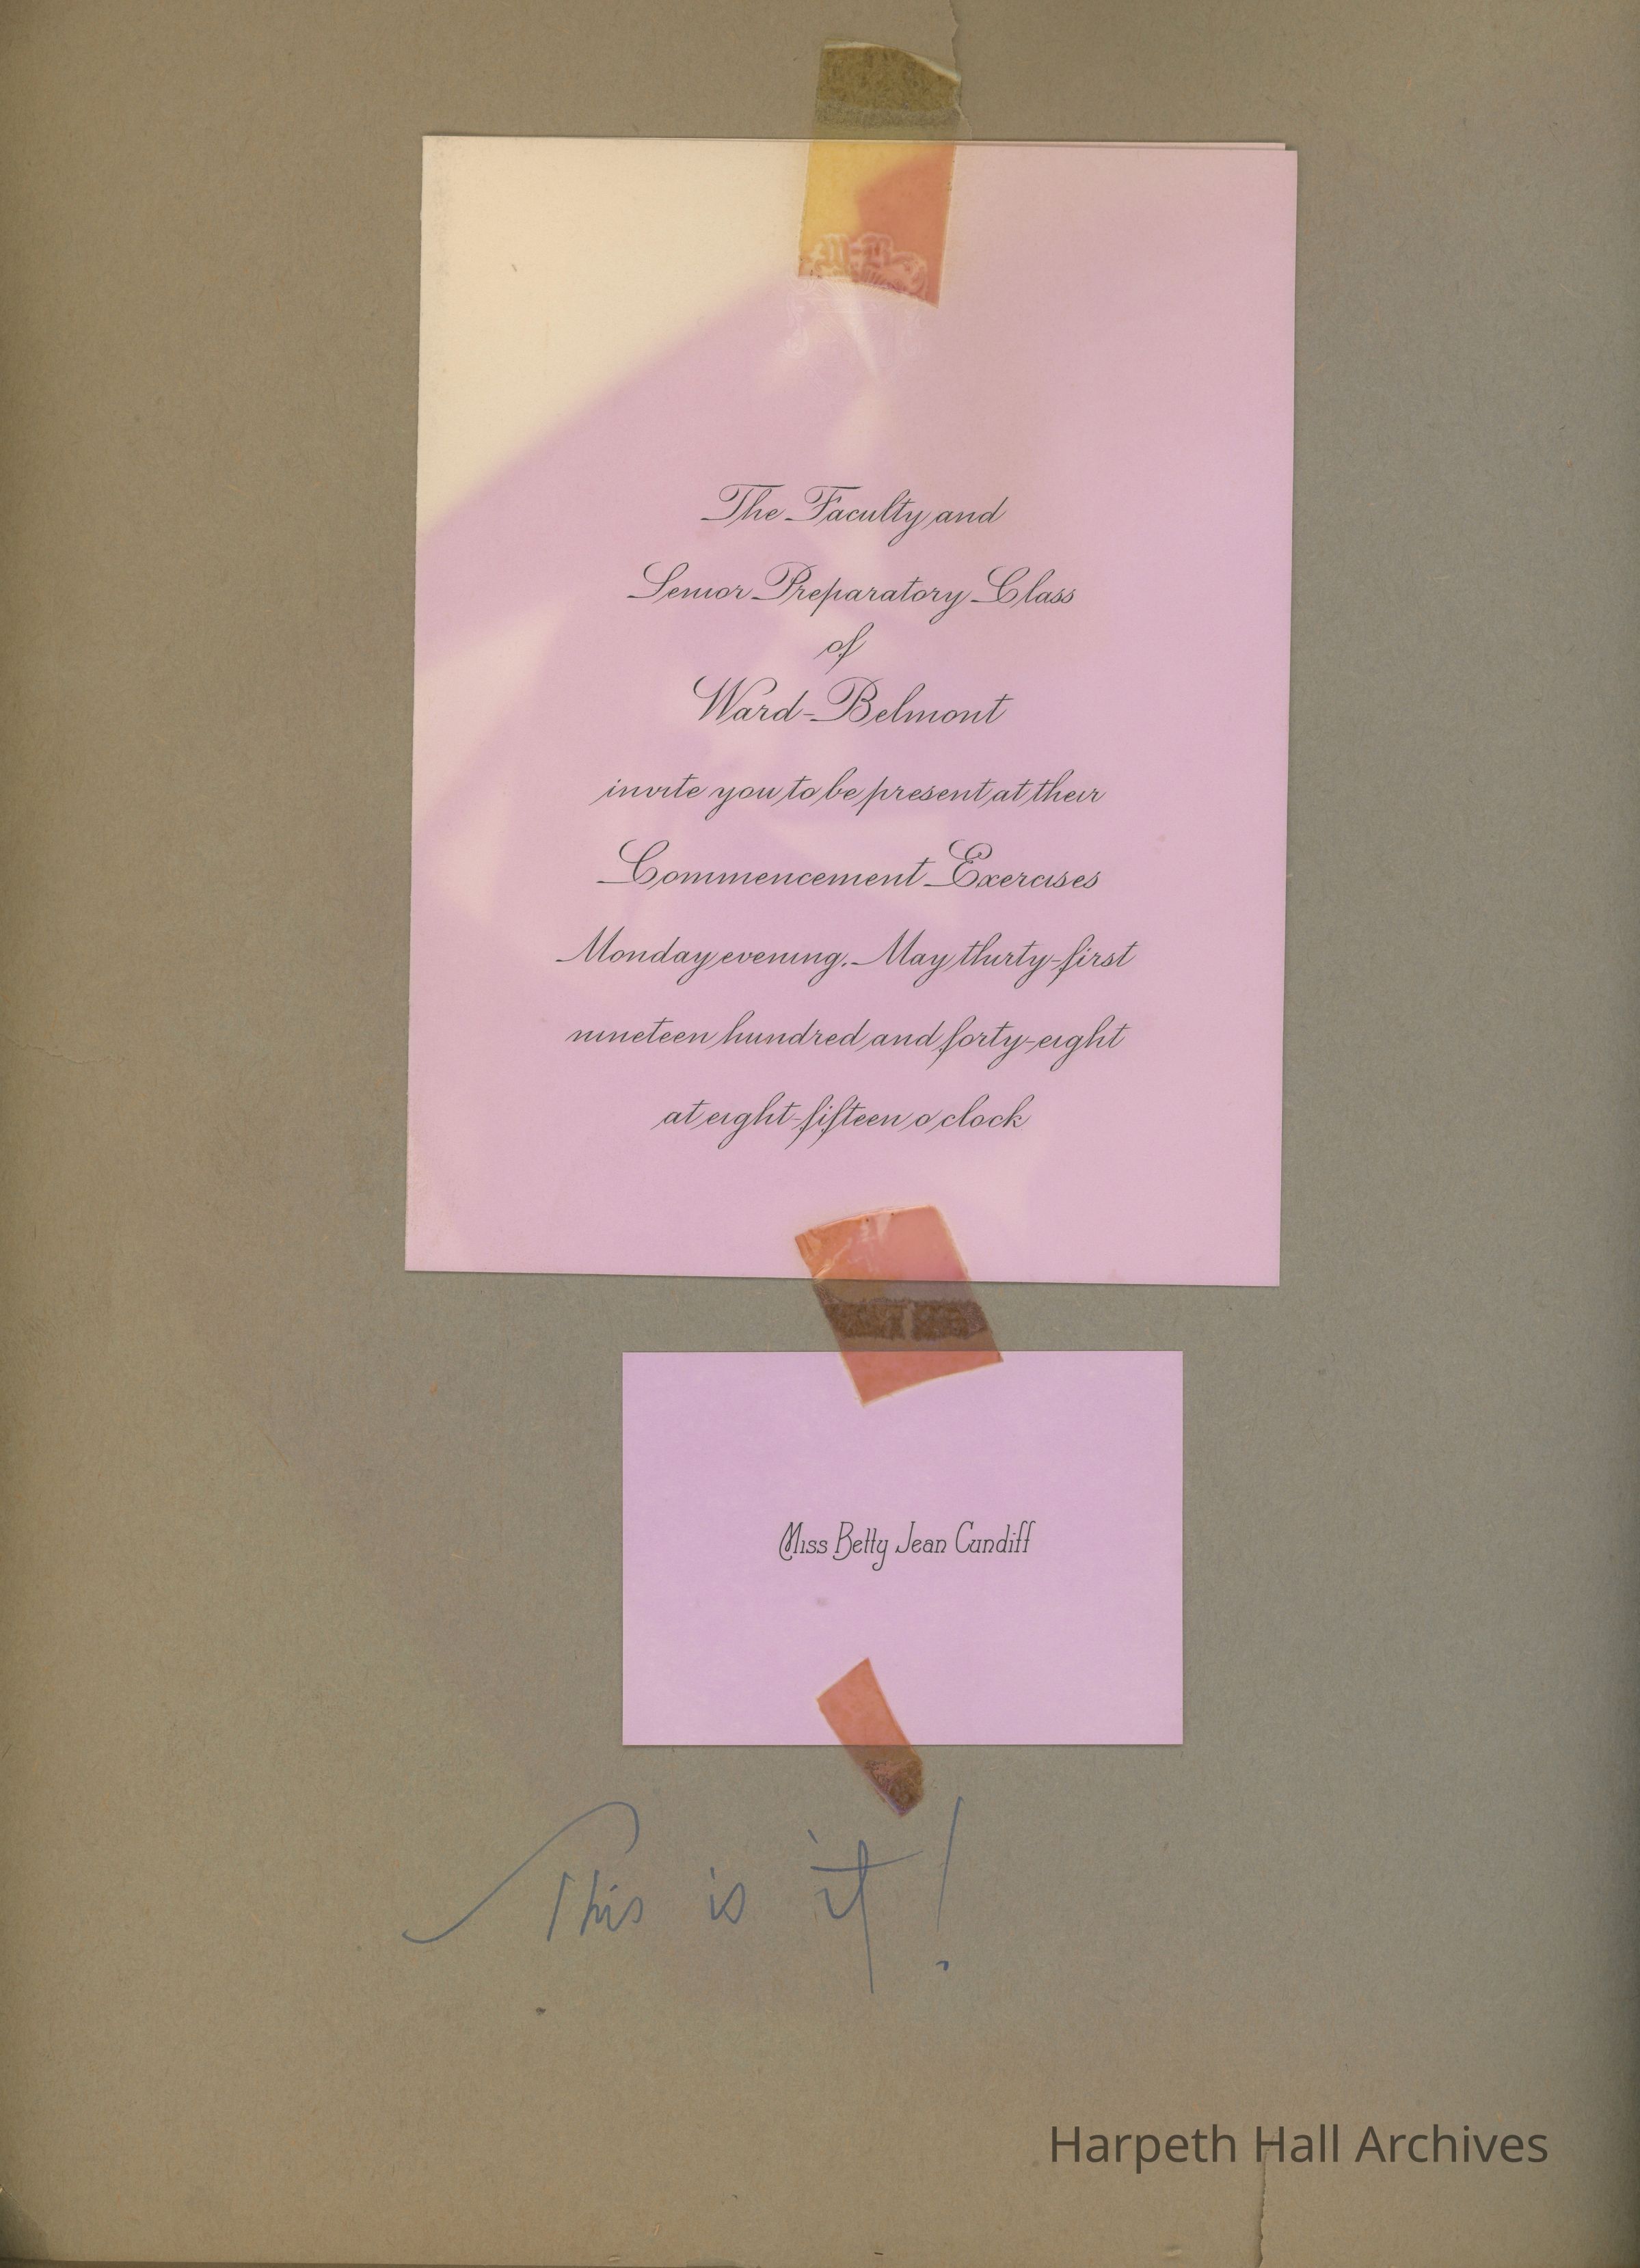 The Faculty and
Senior Preparatory Class
of
Ward-Belmont
invite you to be present at their
Commencement Exercises
Monday evening, May thirty-first
nineteen hundred and forty-eight
at eight-fifteen o'clock
Miss Betty Jean Cundiff
This is it!
Harpeth Hall Archives